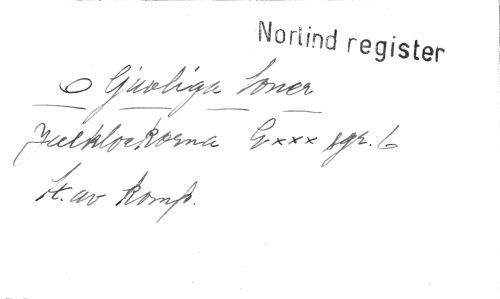 Norlind register
6 Gjuvliga Toner
Julklockorna G xxx sgr. 6
H. av komp.